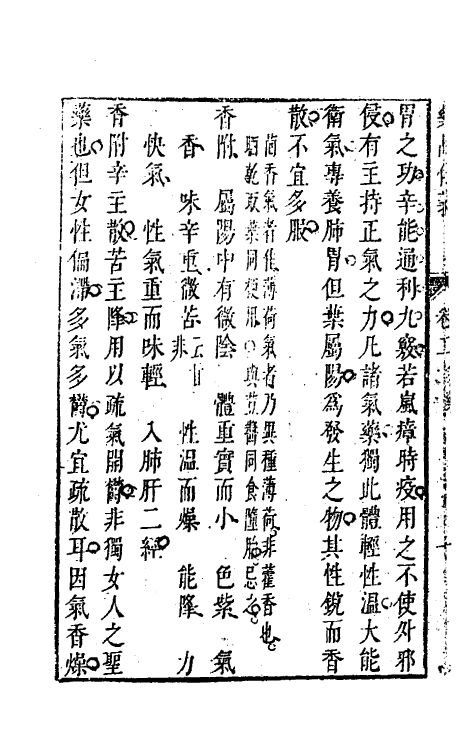 胃之功辛能通利九竅若嵐瘴時疫用之不使外邪
侵有主持正氣之力凡諸氣藥獨此體輕性温大能
衛氣專養肺胃但葉屬陽爲發生之物其性銳而香
散不宜多服
茴香氣者佳薄荷氣者乃異種薄荷非藿香也
晒乾取葉同梗用 與荳蔲同食墮胎忌之
香附 屬陽中有微陰 體重實而小 色紫 氣
香 味辛重微苦云甘非 性温而燥 能降 力
快氣 性氣重而味輕 入肺肝二經
香附辛主散苦主降用以疏氣開鬱非獨女人之聖
藥也但女性偏滯多氣多鬱尤宜疏散耳因氣香燥